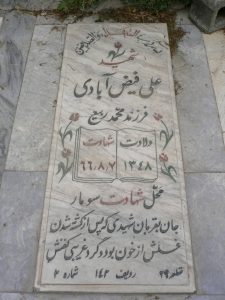 شهید
علی فیض آبادی
فرزند محمد ربیع
ولادت شهادت
۱۳۴۸ ۶۶٫۸٫۷
محل شهادت سومار
جان بقربان شهیدی که پس از کشته شدن
غسلش از خون بود و گرد غریبی کفنش
قطعه ۲۹ ردیف ۱۴۲ شماره ۲